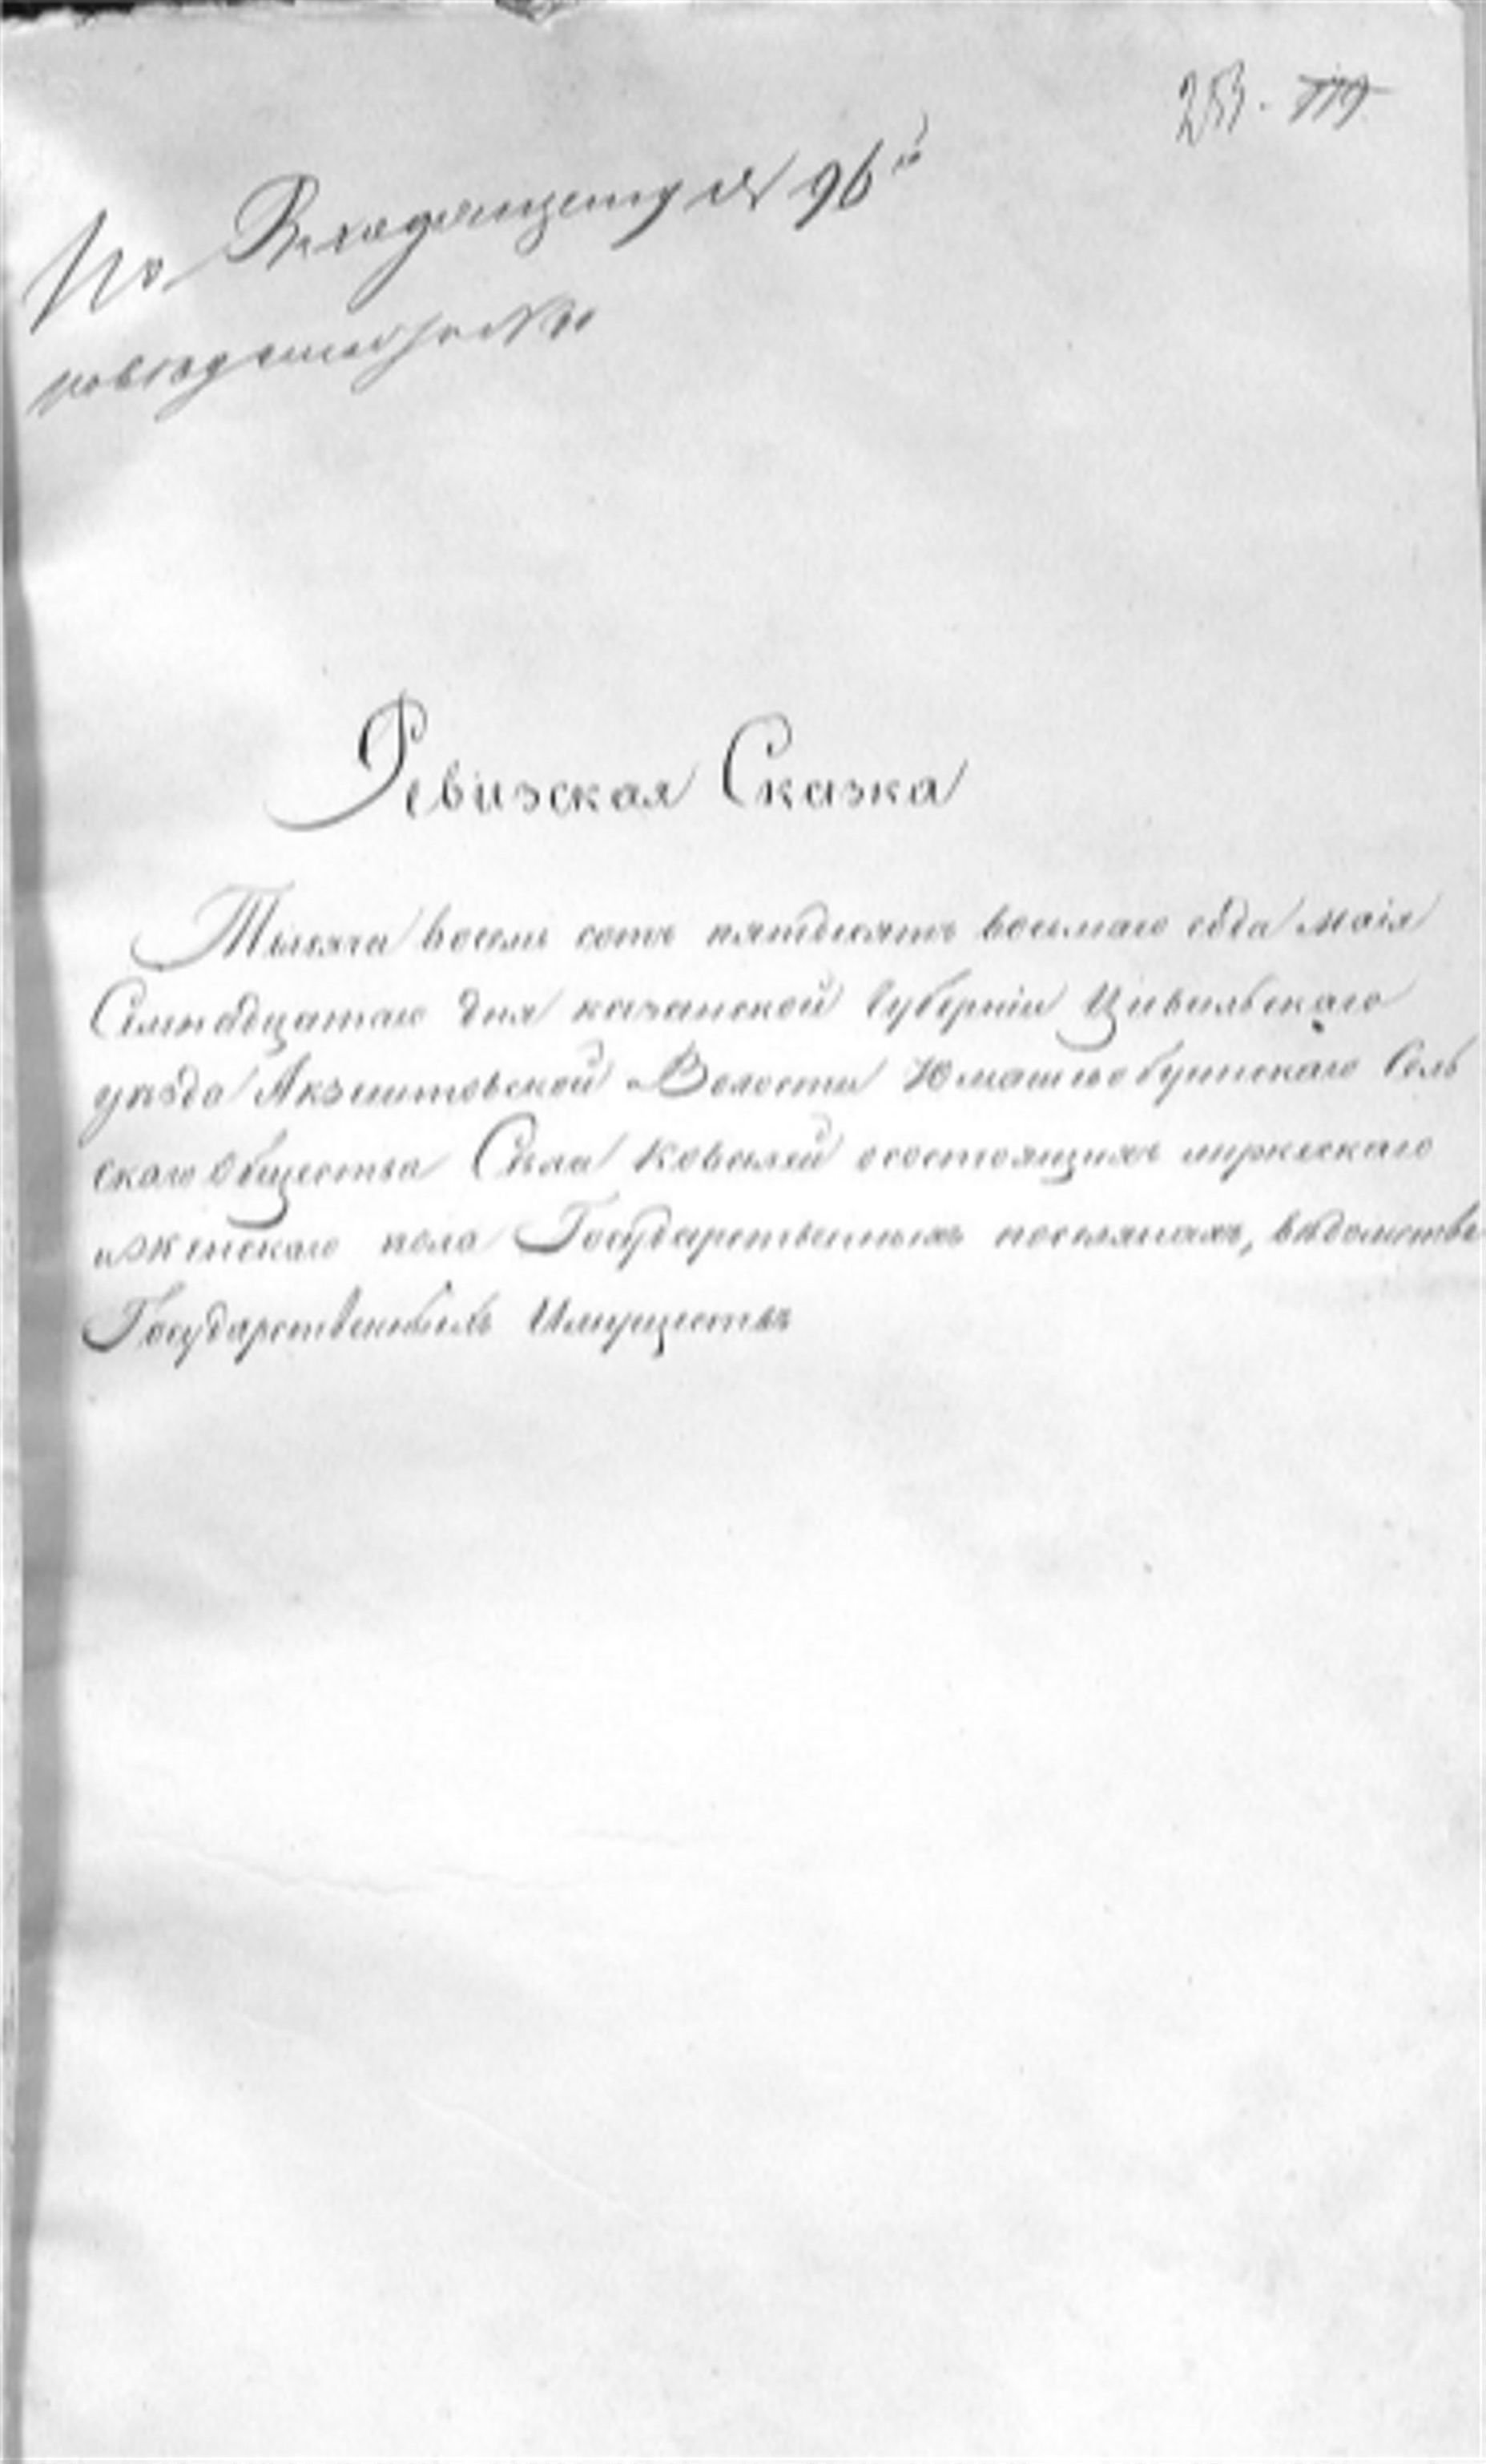 253.
По Входящему № 96й
Ревизская Сказка
Тысяча восемь сотъ пятдесятъ восьмаго года Маія
Семнадцатаго дня казанской Губерніи Цивильскаго
уѣзда Акзегитовской Волости Сель
скаго Общества Села Ковалей осостоящихъ мужескаго
иженскаго пола Государственныхъ поселянахъ, вѣдомства
Государственныхъ Имуществъ